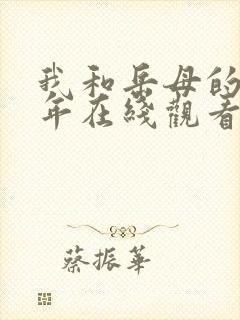 我和岳母的
年在綫觀看
蔡振華